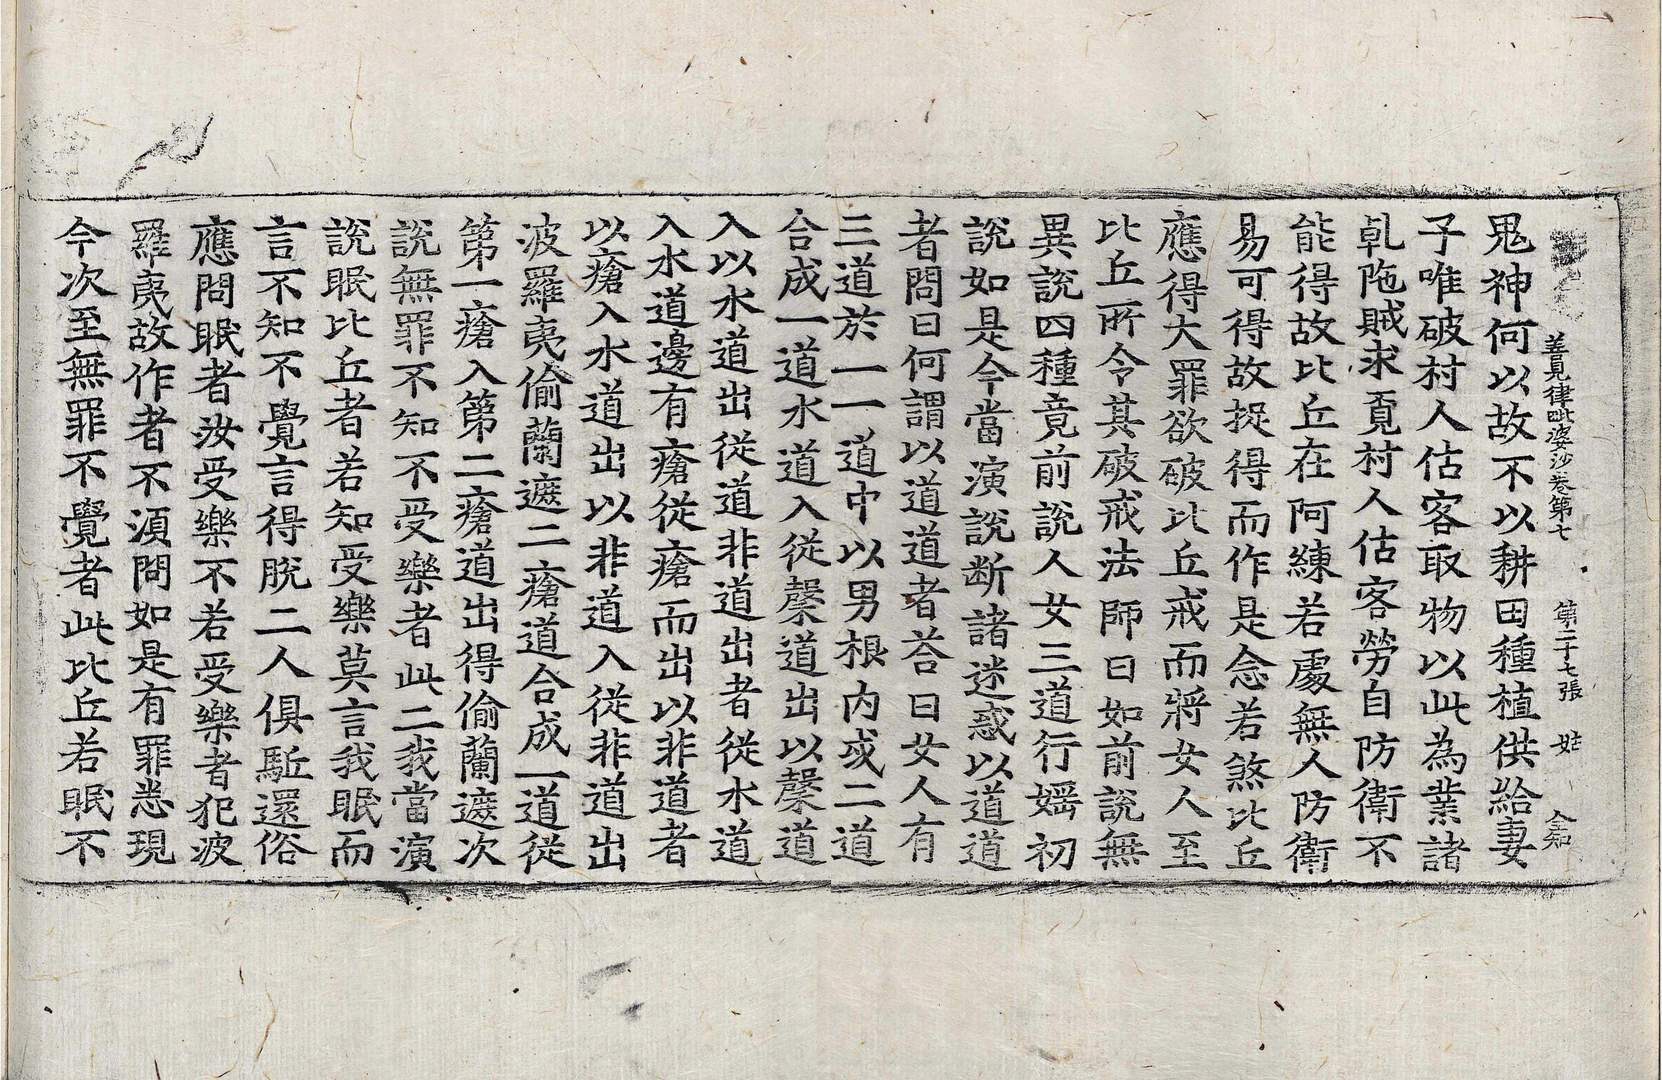 善見律毗婆沙卷第七　第二十七張　姑　仝知
鬼神何以故不以耕田種植供給妻
子唯破村人估客取物以此為業諸
乹陁賊求覔村人估客勞自防衛不
能得故比丘在阿練若處無人防衛
易可得故捉得而作是念若煞比丘
應得大罪欲破比丘戒而將女人至
比丘所令其破戒法師曰如前說無
異說四種竟前說人女三道行婬初
說如是今當演說断諸迷惑以道道
者問曰何謂以道道者荅曰女人有
三道於一一道中以男根內或二道
合成一道水道入從糞道出以糞道
入以水道出從道非道出者從水道
入水道邊有瘡從瘡而出以非道者
以瘡入水道出以非道入從非道出
波羅夷偷蘭遮二瘡道合成一道從
第一瘡入第二瘡道出得偷蘭遮次
說無罪不知不受樂者此二我當演
說眠比丘者若知受樂莫言我眠而
言不知不覺言得脫二人俱駈還俗
應問眠者汝受樂不若受樂者犯波
羅夷故作者不湏問如是有罪悉現
今次至無罪不覺者此比丘若眠不